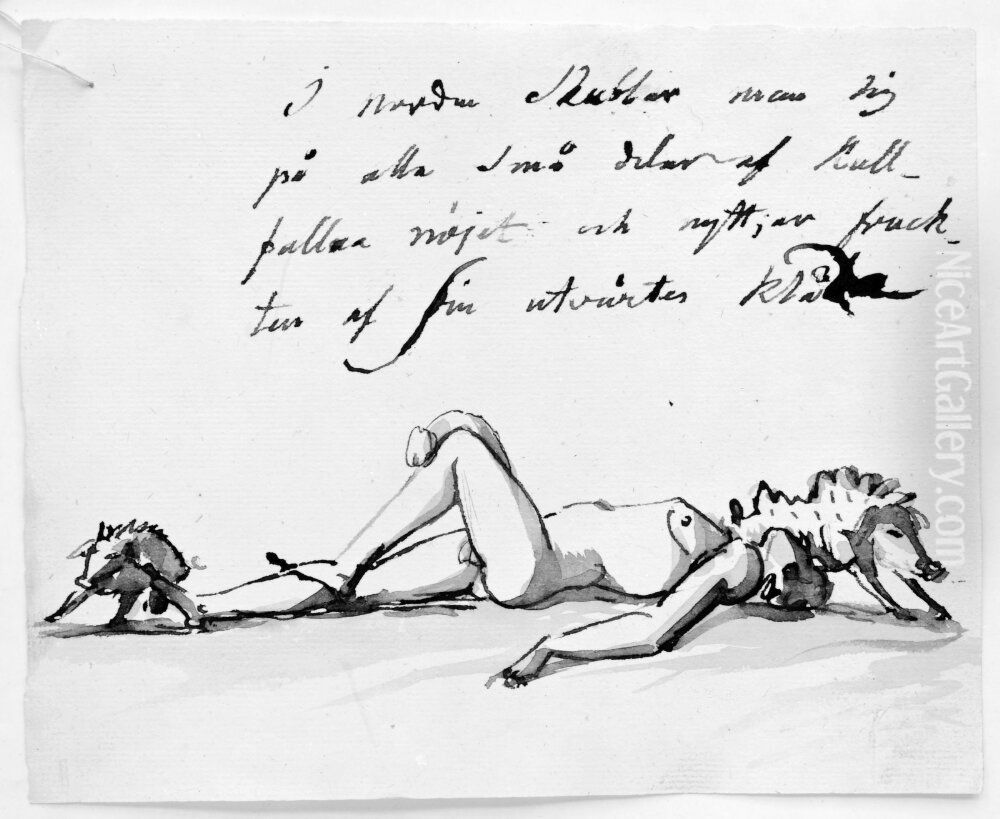 I norden skubbar man sig
på alla små delar af kull-
fallna nöjet och nytt, av fruck-
ten af sin utvärtes klåda
NiceArtGallery.com